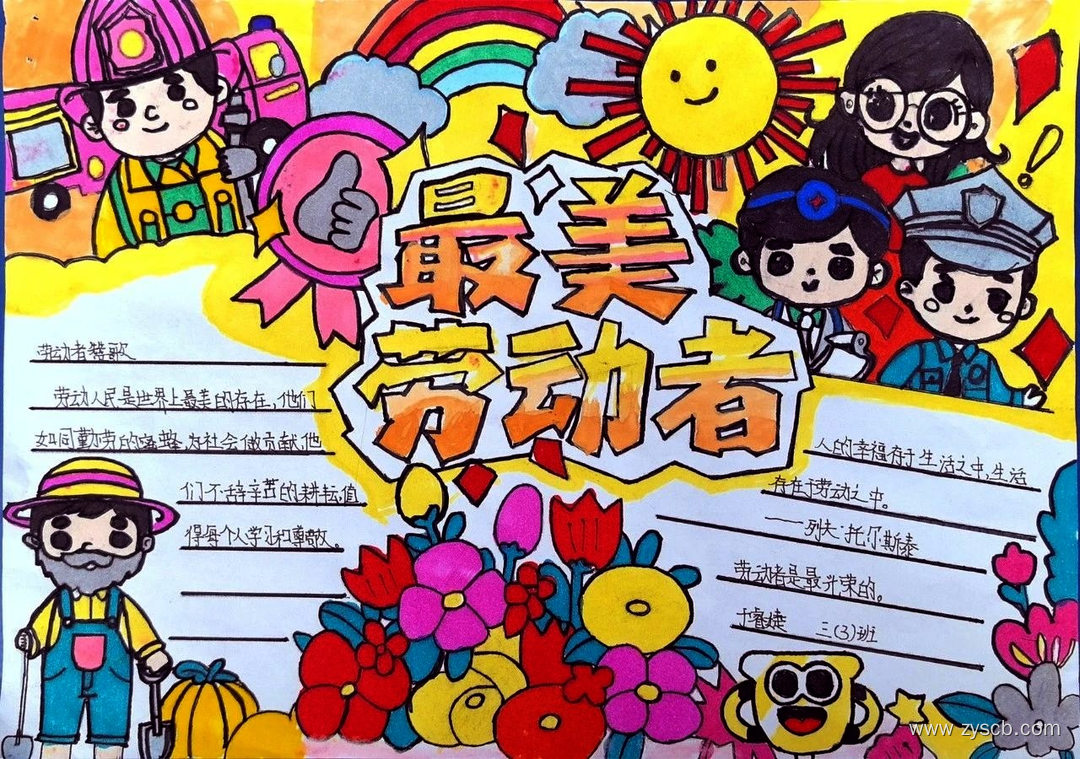 最美
劳动者
劳动者赞歌
劳动人民是世界上最美的存在,他们
如同勤劳的蜜蜂,为社会做贡献,他
们不辞辛苦的耕耘值
得每个人学习和尊敬。
人的幸福存于生活之中,生活
存在于劳动之中。
——列夫·托尔斯泰
劳动者是最光荣的。
于睿婕 三(3)班
www.zyscb.com